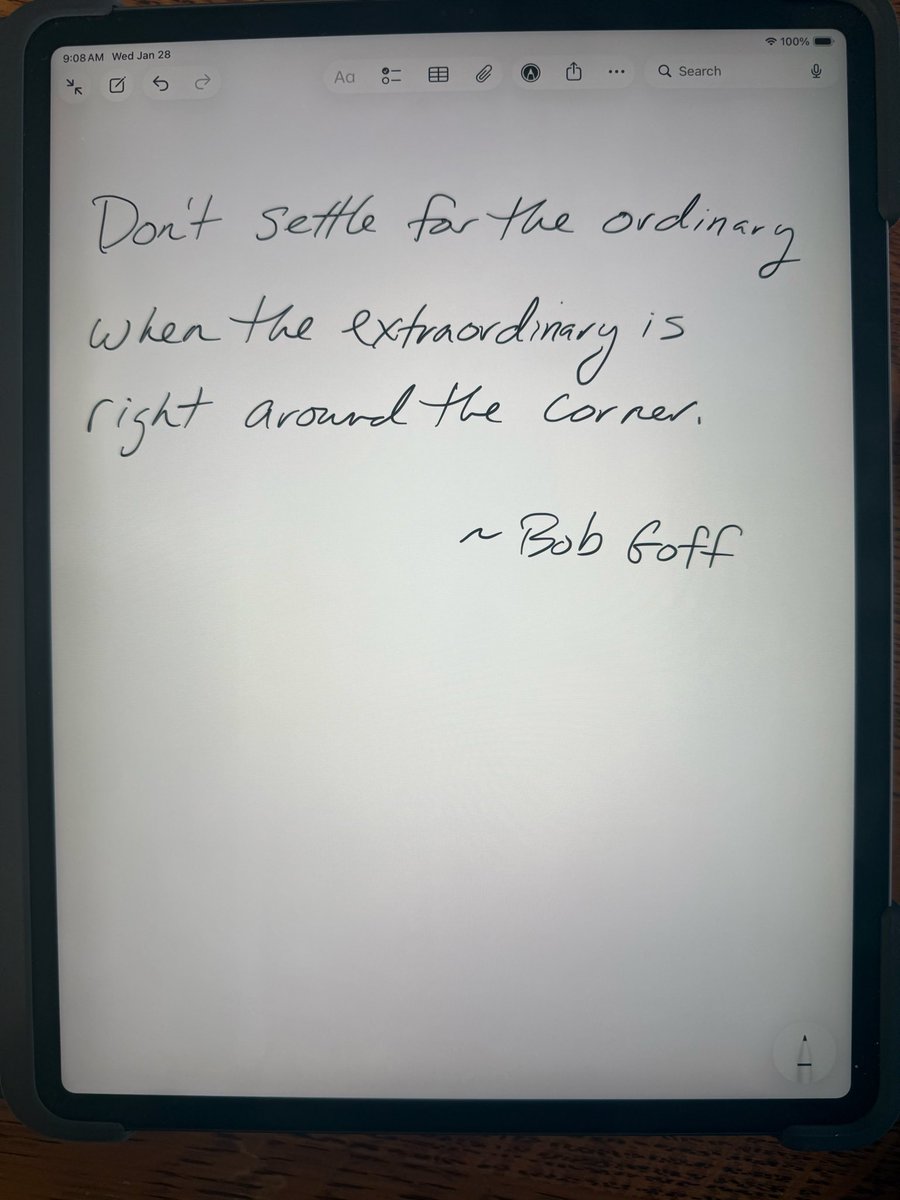 9:08 AM Wed Jan 28
100%
Aa
Search
Don't settle for the ordinary
when the extraordinary is
right around the corner.
~ Bob Goff